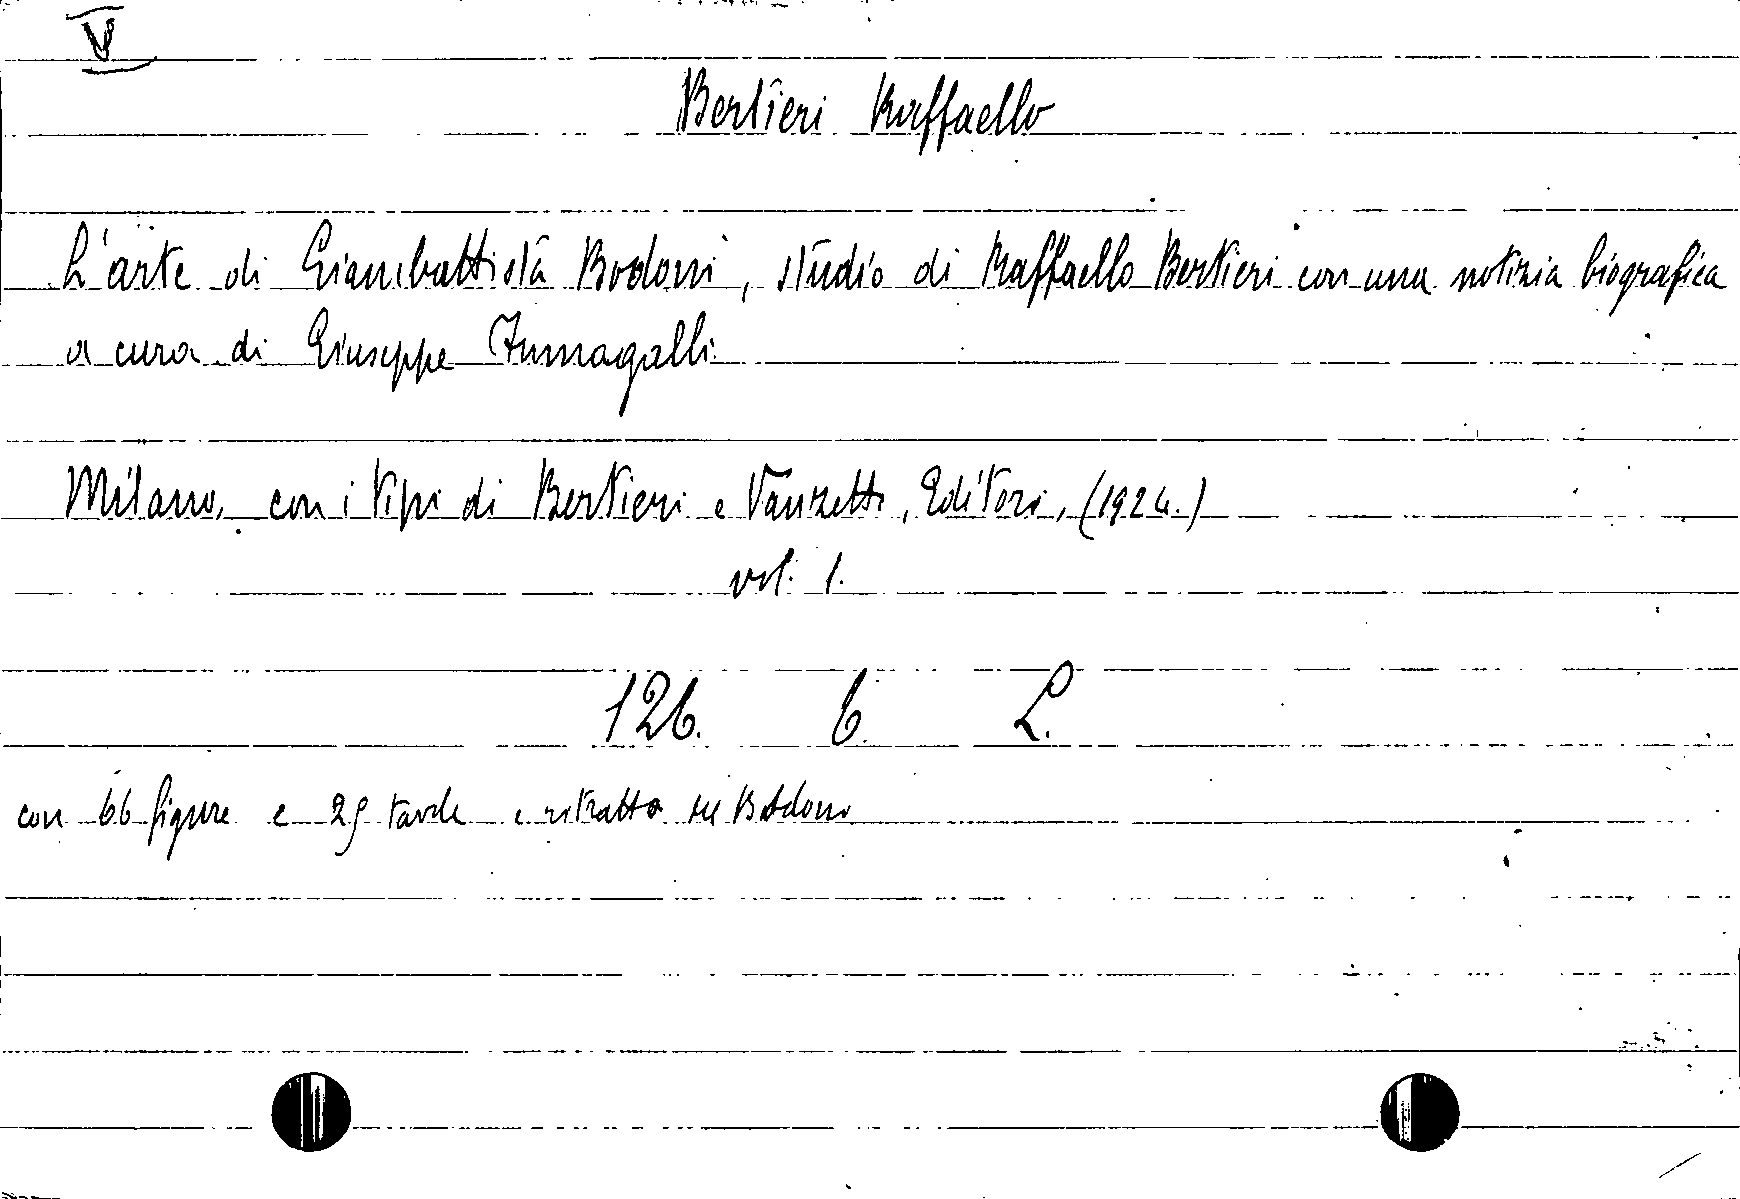 V
Bertieri Raffaello
L'arte di Giambattista Bodoni, studio di Raffaello Bertieri con una notizia biografica
a cura di Giuseppe Fumagalli.
Milano, con i tipi di Bertieri e Vanzetti, Editori, (1924.)
vol. 1.
126. C. L.
con 66 figure e 29 tavole e ritratto del Bodoni